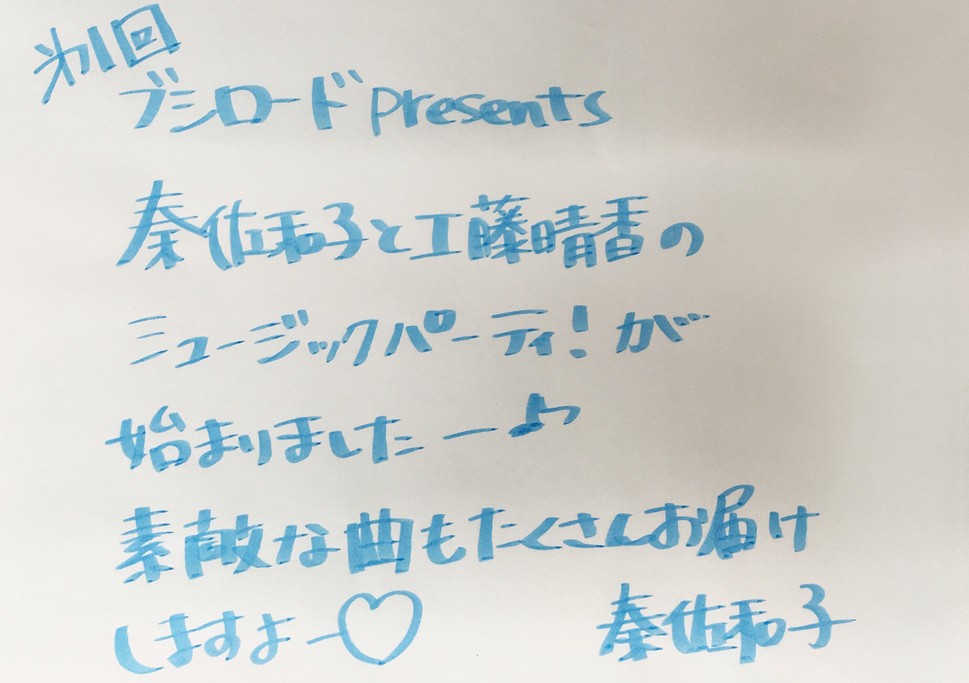 第1回
ブシロード presents
秦佐和子と工藤晴香の
ミュージックパーティ!が
始まりましたー♪
素敵な曲もたくさんお届け
しますよー♡ 秦佐和子